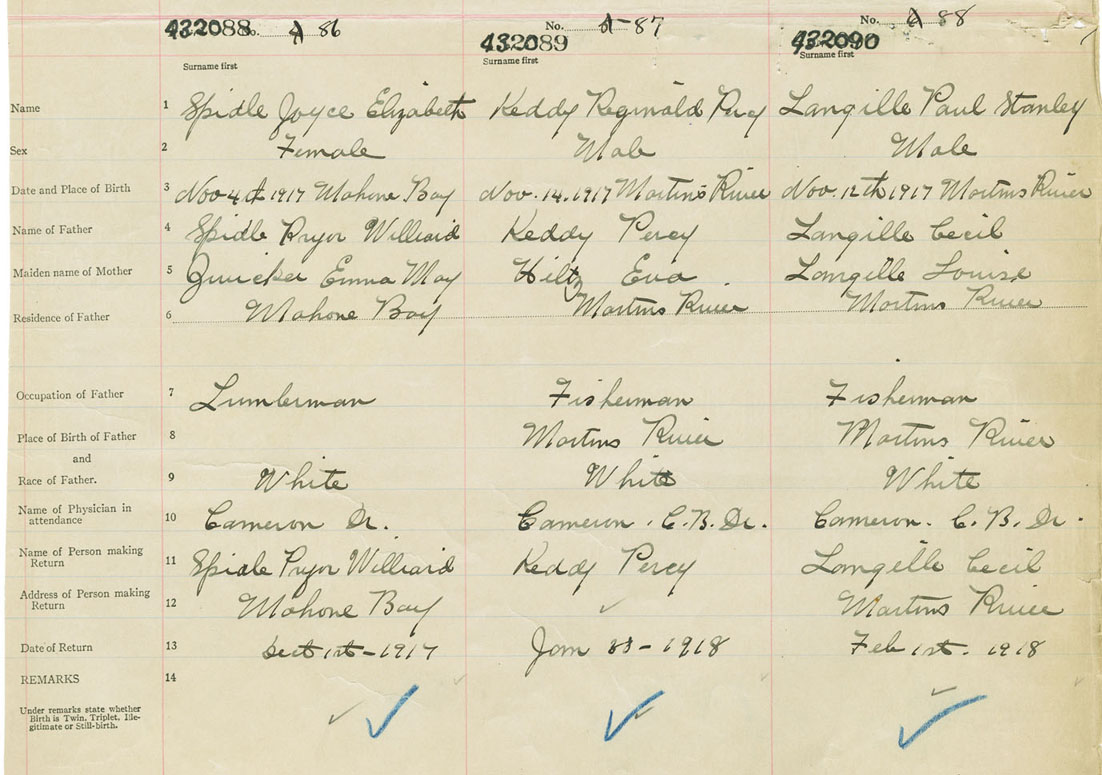 No. A 86 No. A 87 No. A 88
432088 432089 432090
Surname first Surname first Surname first
Name 1 Spidle Joyce Elizabeth Keddy Reginald Percy Langille Paul Stanley
Sex 2 Female Male Male
Date and Place of Birth 3 Nov 4th 1917 Mahone Bay Nov. 14. 1917 Martins River Nov. 12th 1917 Martins River
Name of Father 4 Spidle Pryor Williaid Keddy Percy Langille Cecil
Maiden name of Mother 5 Zwicker Emma May Hiltz Eva Langille Louise
Residence of Father 6 Mahone Bay Martins River Martins River
Occupation of Father 7 Lumberman Fisherman Fisherman
Place of Birth of Father 8 Martins River Martins River
and
Race of Father. 9 White White White
Name of Physician in
attendance 10 Cameron Dr. Cameron. C. B. Dr. Cameron. C. B. Dr.
Name of Person making
Return 11 Spidle Pryor Williaid Keddy Percy Langille Cecil
Address of Person making
Return 12 Mahone Bay Martins River
Date of Return 13 1st - 1917 Jan - 1918 Feb 1st. 1918
REMARKS 14
Under remarks state whether
Birth is Twin, Triplet, Ille-
gitimate or Still-birth.